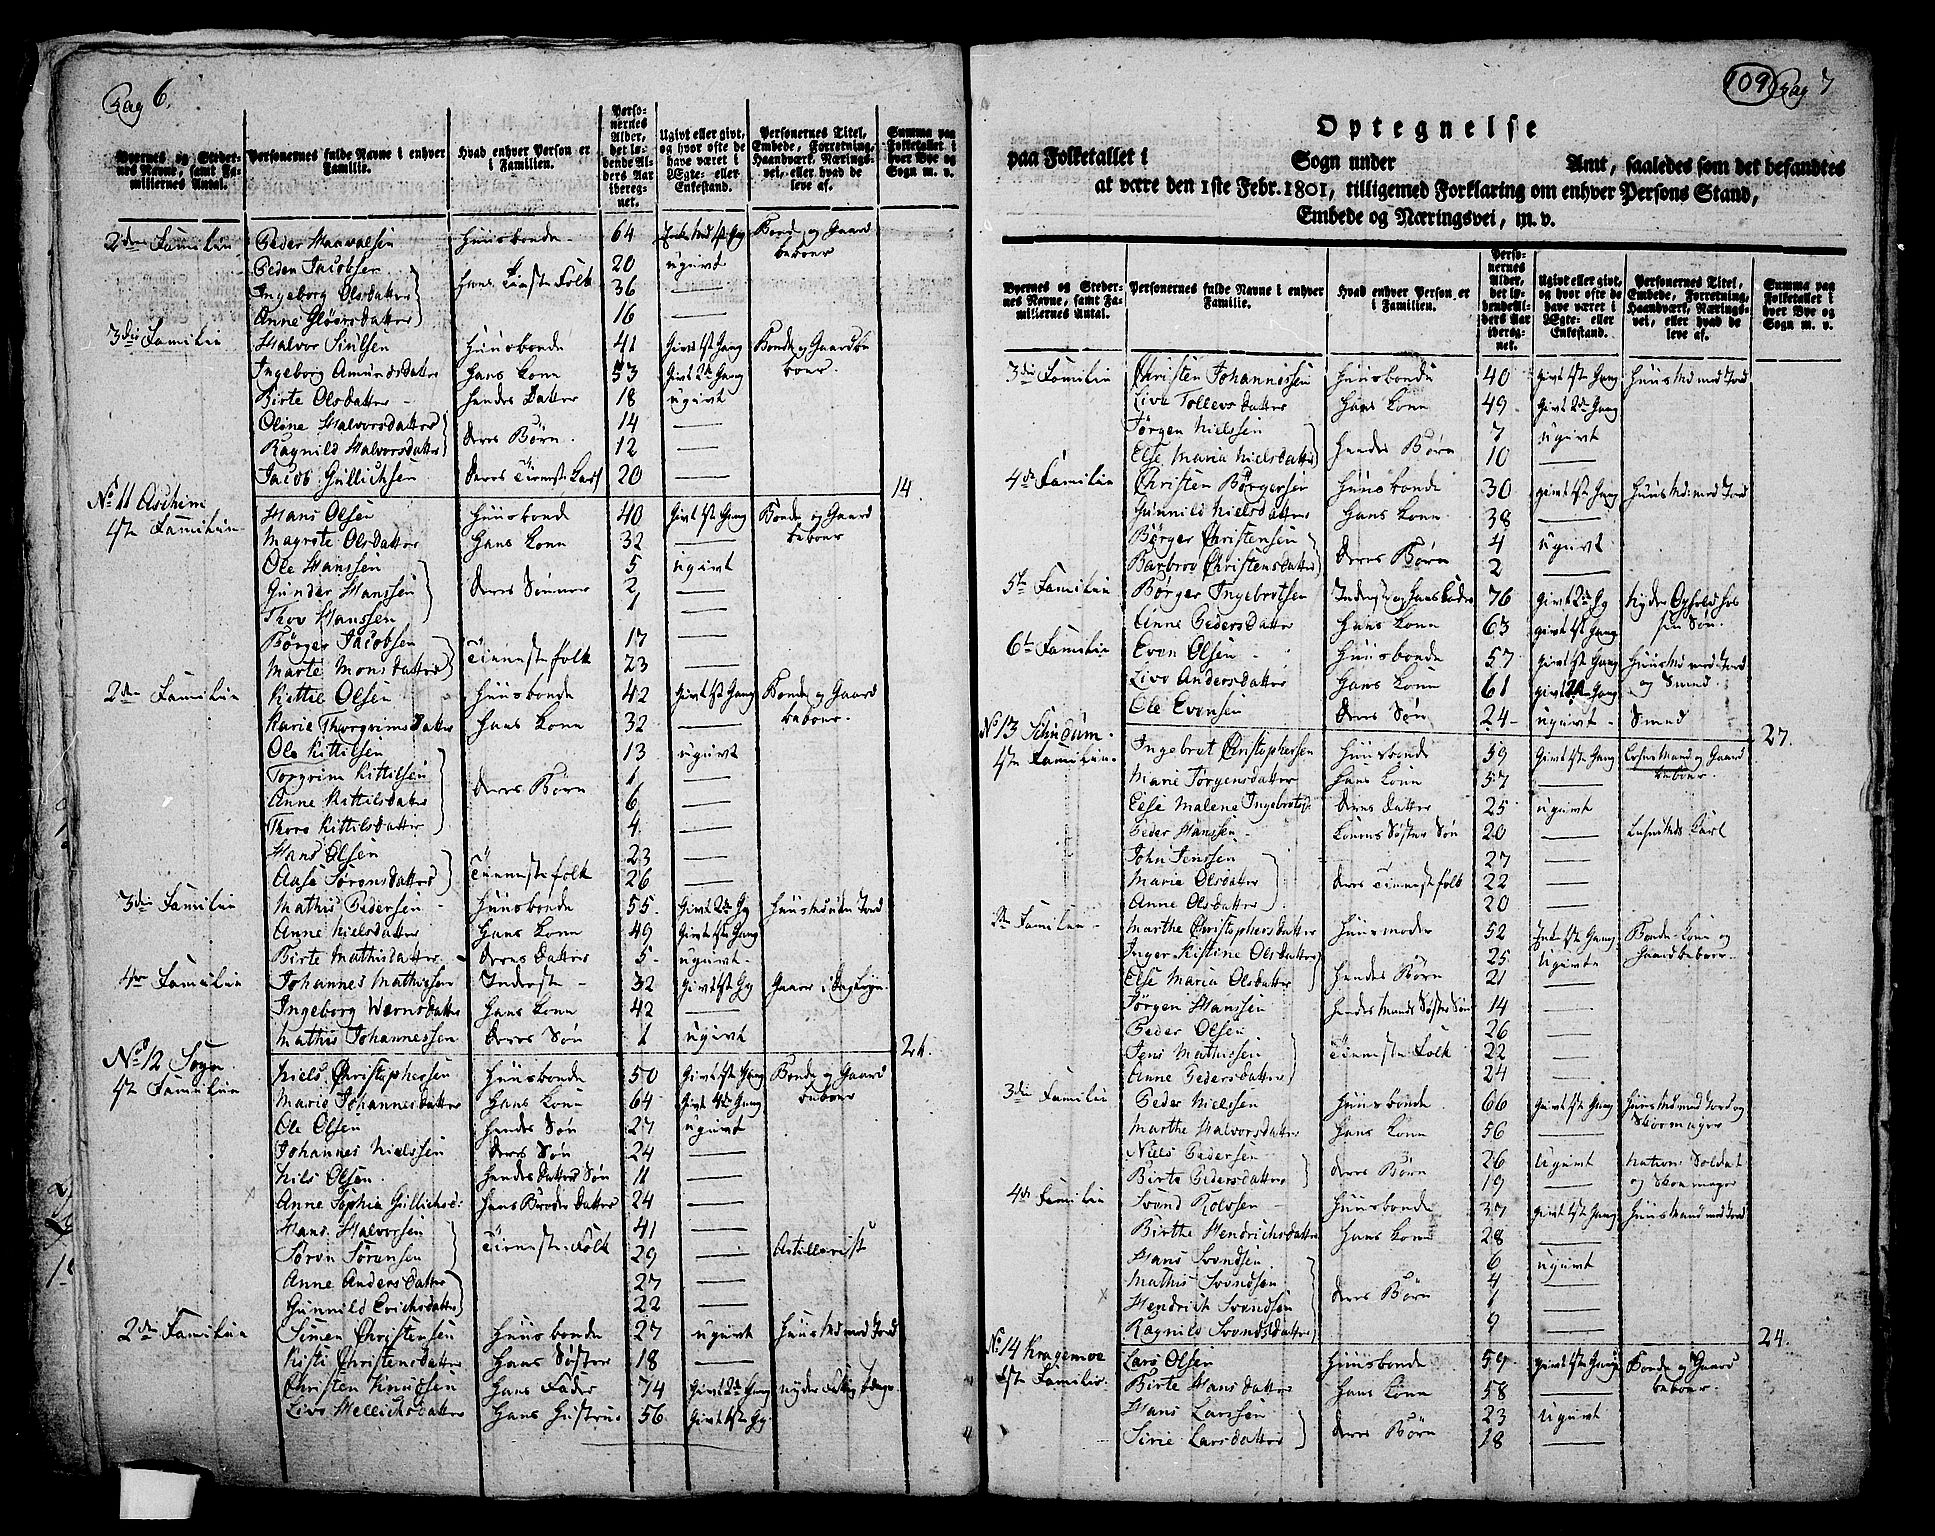 Pag 6.
Byernes og Steder-
nes Navne, samt Fa-
miliernes Antal.
Personernes fulde Navne i enhver
Familie.
Hvad enhver Person er
i Familien.
Perso-
nernes
Alder,
det lø-
bende Al-
ders Aar
iberegn-
net.
Ugivt eller givt,
og hvor ofte de
have været i
Ægte- eller
Enkestand.
Personernes Titel,
Embede, Forretning,
Haandværk, Nærings-
vei, eller hvad de
leve af.
Summa paa
Folketallet i
hver Bye og
Sogn m. v.
2den Familie Peder Haavalsen Huusbonde 64 Bonde og Gaard
beboer
Peder Jacobsen 20 ugivt
Ingeborg Olsdatter hans Tieneste Folk 36 —
Anne Gløersdatter 16 —
3die Familie Halvor Simesen Huusbonde 41 Givt 1ste Gang Bonde og Gaardbe
boer
Ingeborg Amundsdatter Hans Kone 53 Givt 2den Gang
Birte Olsdatter Hendes Datter 18 ugivt
Oline Halvorsdatter 14 —
Ragnild Halvorsdatter deres Børn. 12 —
Jacob Gullichsen deres Tieneste Karl 20 — 14.
No 11 Aschem
1ste Familie Hans Olsen Huusbonde 40 Givt 1ste Gang Bonde og Gaard
beboer
Magrete Olsdatter Hans Kone 32 —
Ole Hanssen 5 ugivt
Gunder Hanssen deres Sønner 2 —
Thov Hanssen 1
Børger Jacobsen 17 —
Marte Monsdatter Tieneste folk 23 —
2den Familie Kittil Olsen Huusbonde 42 Givt 1ste Gang Bonde og Gaard
beboer
Marie Thorgrimsdatter Hans Kone 32 —
Ole Kittilsen 13 ugivt
Torgrim Kittilsen 1 —
Anne Kittilsdatter deres Børn 6 —
Thore Kittilsdatter 4 —
Hans Olsen 23 —
Aase Sørensdatter Tieneste folk 26 —
3die Familie Mathis Pedersen Huusbonde 55 Givt 2den Gg Huusmd uden Jord
Anne Nielsdatter Hans Kone 49 Givt 1ste Gang
Birte Mathisdatter deres datter 5 ugivt
4de Familie Johannes Mathissen Inderste 32 Givt 1ste Gg Gaaer i Dagleyn
Ingeborg Wernsdatter Hans Kone 42 —
Mathis Johannessen deres Søn 1 ugivt 21.
No 12 Sogn
1ste Familie Niels Christophersen Huusbonde 50 Givt 1ste Gang Bonde og Gaard
beboer
Marie Johannesdatter Hans Kone 64 Givt 4de Gang
Ole Olsen Hendes Søn 27 ugivt
Johannes Nielssen deres Søn 24 —
Nils Olsen. Hendes datters Søn 11 —
Anne Sophia Gullichsd: Hans Broders datter 24 —
Hans Halvorsen 41 —
Søren Sørensen Tieneste Folk 29 — Artillerist
Anne Andersdatter 27 —
Gunnild Erichsdatter 22 —
2den Familie Simen Christensen Huusbonde 27 ugivt Huusmd med Jord
Kisti Christensdatter Hans Søster 18 —
Christen Knudsen Hans Fader 74 Givt 2den Gang
Live Mellichsdatter Hans Hustrue 56 Givt 1ste Gg
109 Pag 7
Optegnelse
paa Folketallet i Sogn under Amt, saaledes som det befandtes
at være den 1ste Febr. 1801, tilligemed Forklaring om enhver Persons Stand,
Embede og Næringsvei, m. v.
Byernes og Steder-
nes Navne, samt Fa-
miliernes Antal.
Personernes fulde Navne i enhver
Familie.
Hvad enhver Person er
i Familien.
Perso-
nernes
Alder,
det lø-
bende Al-
ders Aar
iberegn-
net.
Ugivt eller givt,
og hvor ofte de
have været i
Ægte- eller
Enkestand.
Personernes Titel,
Embede, Forretning,
Haandværk, Nærings-
vei, eller hvad de
leve af.
Summa paa
Folketallet i
hver Bye og
Sogn m. v.
3die Familie Christen Johannessen Huusbonde 40 givt 1ste Gang Huusmd med Jord
Live Tollevsdatter Hans Kone 49 Givt 2den Gang
Jørgen Nielssen 7 ugivt
Else Maria Nielsdatter Hendes Børn 10 —
4de Familie Christen Børgersen Huusbonde 30 givt 1ste Gang Huusmd: med Jord
Gunnild Nielsdatter Hans Kone 38 —
Børger Christensen 4 ugivt
Barbroe Christensdatter deres Børn 2 —
5te Familie Børger Ingebretsen Inderste og Hans Fader 76 Givt 2den Gg Nyder Ophold hos
sin Søn
Anne Pedersdatter Hans Kone 63 Givt 1ste Gang
6te Familie Even Olsen Huusbonde 57 Givt 1ste Gang Huusmd med Jord
og Smed
Live Andersdatter Hans Kone 61 Givt 2den Gang
Ole Evensen deres Søn 24 ugivt Smed 27.
No 13
1ste Familie Ingebret Christophersen Huusbonde 59 Givt 1ste Gang Gaard
beboer
Marie Jørgensdatter Hans Kone 57 —
Else Malene Ingebretsd: deres datter 25 ugivt
Peder Hanssen Konens Søster Søn 20 —
John Jenssen 27 —
Maria Olsdatter deres Tieneste folk 22 —
Anne Olsdatter 20 —
2den Familie Marthe Christophersdatter Huusmoder 52 1ste Gang Bonde Kone og
Gaardbeboer
Inger Kistine Olsdatter 25 Ugivte
Else Maria Olsdatter Hendes Børn 21 —
Jørgen Hanssen Hendes Mands Søster Søn 14 —
Peder Olsen 26 —
Jens Mathissen Tieneste Folk 22 —
Anne Pedersdatter 24 —
3die Familie Peder Nielssen Huusbonde 66 givt 1ste Gang Huusmd med Jord og
Skoemager
Marthe Halvorsdatter Hans Kone 56 —
Niels Pedersen 26 Ugivt Nation: Soldat
og Skoemager
Birte Pedersdatter deres Børn 19 —
4de Familie Svend Rolvsen Huusbonde 37 givt 1ste Gang Huusmand med Jord
Birthe Hendrichsdatter Hans Kone 28 —
Hans Svendsen 6 ugivt
Mathis Svendsen 4 —
Hendrich Svendsen deres Børn 1 —
Ragnild Svendsdatter 9 — 24.
No 14 Kragemoe
1ste Familie Lars Olsen Huusbonde 59 givt 1ste Gang Bonde og Gaard
beboer
Birte Hansdatter Hans Kone 58 —
Hans Larssen 23 Ugivt
Sirie Larsdatter deres Børn 18 —